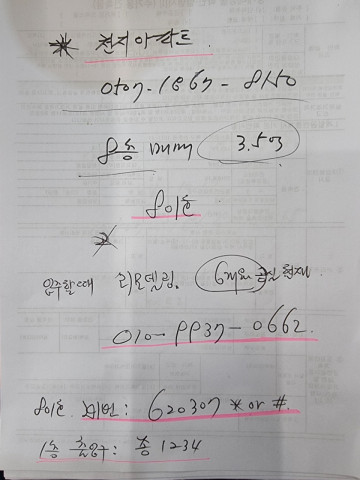 * 천지아파트
010)-1867-8150
8층 매매 3.5억
801호
*
입주할때 리모델링. 6개월 공실 현재
010-9937-0662.
801호 비번: 620307 * or #.
1층 출입구: 종 1234